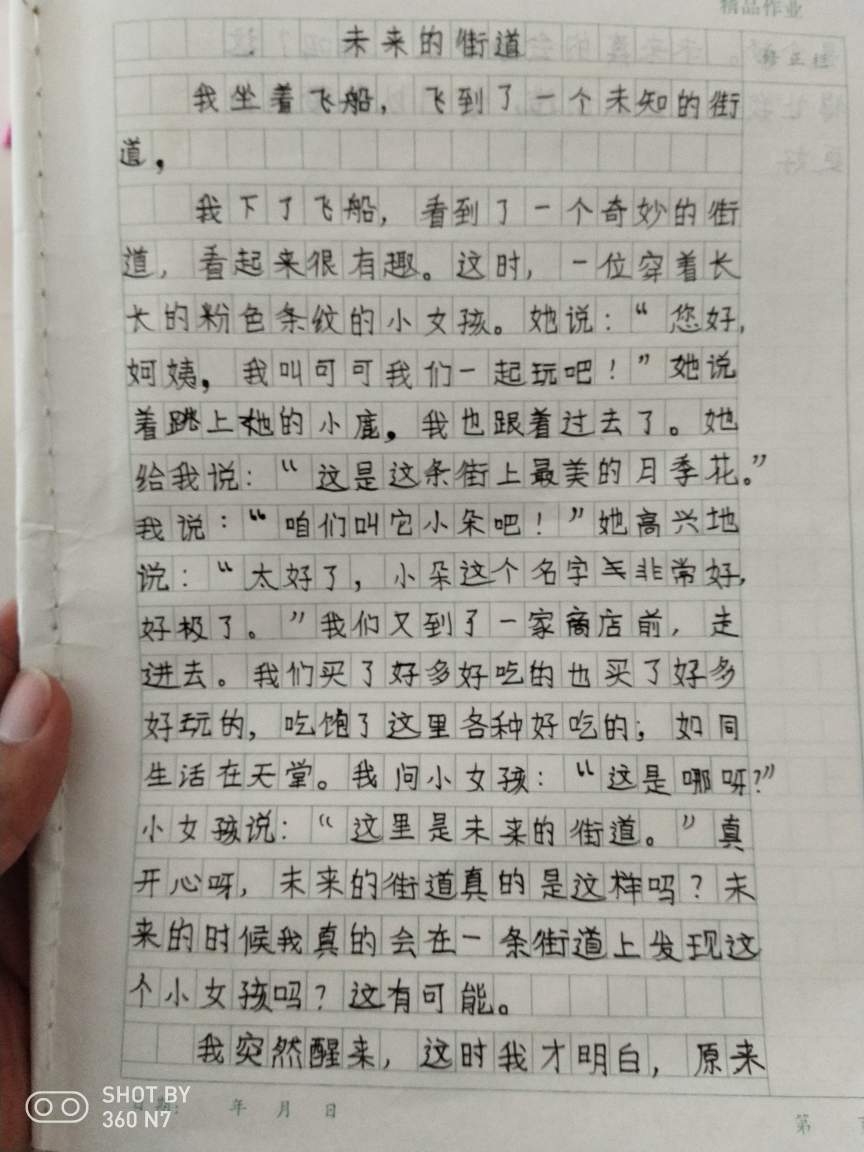 精品作业
修正栏
未来的街道
我坐着飞船，飞到了一个未知的街
道，
我下了飞船，看到了一个奇妙的街
道，看起来很有趣。这时，一位穿着长
长的粉色条纹的小女孩。她说：“您好，
妸姨，我叫可可我们一起玩吧！”她说
着跳上她的小鹿，我也跟着过去了。她
给我说：“这是这条街上最美的月季花。”
我说：“咱们叫它小朵吧！”她高兴地
说：“太好了，小朵这个名字非常好，
好极了。”我们又到了一家商店前，走
进去。我们买了好多好吃的也买了好多
好玩的，吃饱了这里各种好吃的；如同
生活在天堂。我问小女孩：“这是哪呀？”
小女孩说：“这里是未来的街道。”真
开心呀，未来的街道真的是这样吗？未
来的时候我真的会在一条街道上发现这
个小女孩吗？这有可能。
我突然醒来，这时我才明白，原来
年 月 日
第
SHOT BY
360 N7